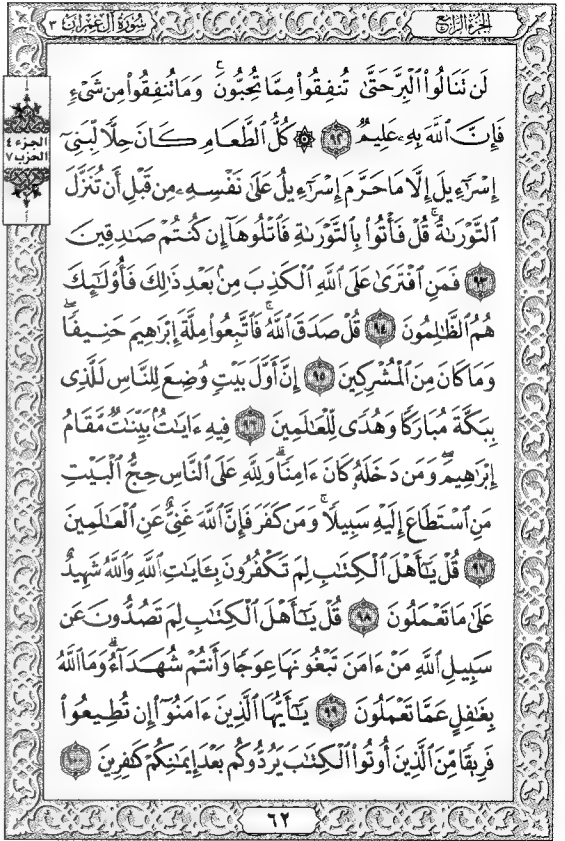 الجزء الرابع
سورة آل عمران ٣
لَن تَنَالُوا۟ ٱلْبِرَّ حَتَّىٰ تُنفِقُوا۟ مِمَّا تُحِبُّونَ ۚ وَمَا تُنفِقُوا۟ مِن شَىْءٍ
فَإِنَّ ٱللَّهَ بِهِۦ عَلِيمٌ ٩٢ ۞ كُلُّ ٱلطَّعَامِ كَانَ حِلًّا لِّبَنِىٓ
إِسْرَٰٓءِيلَ إِلَّا مَا حَرَّمَ إِسْرَٰٓءِيلُ عَلَىٰ نَفْسِهِۦ مِن قَبْلِ أَن تُنَزَّلَ
ٱلتَّوْرَىٰةُ ۗ قُلْ فَأْتُوا۟ بِٱلتَّوْرَىٰةِ فَٱتْلُوهَآ إِن كُنتُمْ صَٰدِقِينَ
٩٣ فَمَنِ ٱفْتَرَىٰ عَلَى ٱللَّهِ ٱلْكَذِبَ مِنۢ بَعْدِ ذَٰلِكَ فَأُو۟لَٰٓئِكَ
هُمُ ٱلظَّٰلِمُونَ ٩٤ قُلْ صَدَقَ ٱللَّهُ ۗ فَٱتَّبِعُوا۟ مِلَّةَ إِبْرَٰهِيمَ حَنِيفًا ۖ
وَمَا كَانَ مِنَ ٱلْمُشْرِكِينَ ٩٥ إِنَّ أَوَّلَ بَيْتٍ وُضِعَ لِلنَّاسِ لَلَّذِى
بِبَكَّةَ مُبَارَكًا وَهُدًى لِّلْعَٰلَمِينَ ٩٦ فِيهِ ءَايَٰتٌۢ بَيِّنَٰتٌ مَّقَامُ
إِبْرَٰهِيمَ ۖ وَمَن دَخَلَهُۥ كَانَ ءَامِنًا ۗ وَلِلَّهِ عَلَى ٱلنَّاسِ حِجُّ ٱلْبَيْتِ
مَنِ ٱسْتَطَاعَ إِلَيْهِ سَبِيلًا ۚ وَمَن كَفَرَ فَإِنَّ ٱللَّهَ غَنِىٌّ عَنِ ٱلْعَٰلَمِينَ
٩٧ قُلْ يَٰٓأَهْلَ ٱلْكِتَٰبِ لِمَ تَكْفُرُونَ بِـَٔايَٰتِ ٱللَّهِ وَٱللَّهُ شَهِيدٌ
عَلَىٰ مَا تَعْمَلُونَ ٩٨ قُلْ يَٰٓأَهْلَ ٱلْكِتَٰبِ لِمَ تَصُدُّونَ عَن
سَبِيلِ ٱللَّهِ مَنْ ءَامَنَ تَبْغُونَهَا عِوَجًا وَأَنتُمْ شُهَدَآءُ ۗ وَمَا ٱللَّهُ
بِغَٰفِلٍ عَمَّا تَعْمَلُونَ ٩٩ يَٰٓأَيُّهَا ٱلَّذِينَ ءَامَنُوٓا۟ إِن تُطِيعُوا۟
فَرِيقًا مِّنَ ٱلَّذِينَ أُوتُوا۟ ٱلْكِتَٰبَ يَرُدُّوكُم بَعْدَ إِيمَٰنِكُمْ كَٰفِرِينَ ١٠٠
الجزء ٤
الحزب ٧
٦٢